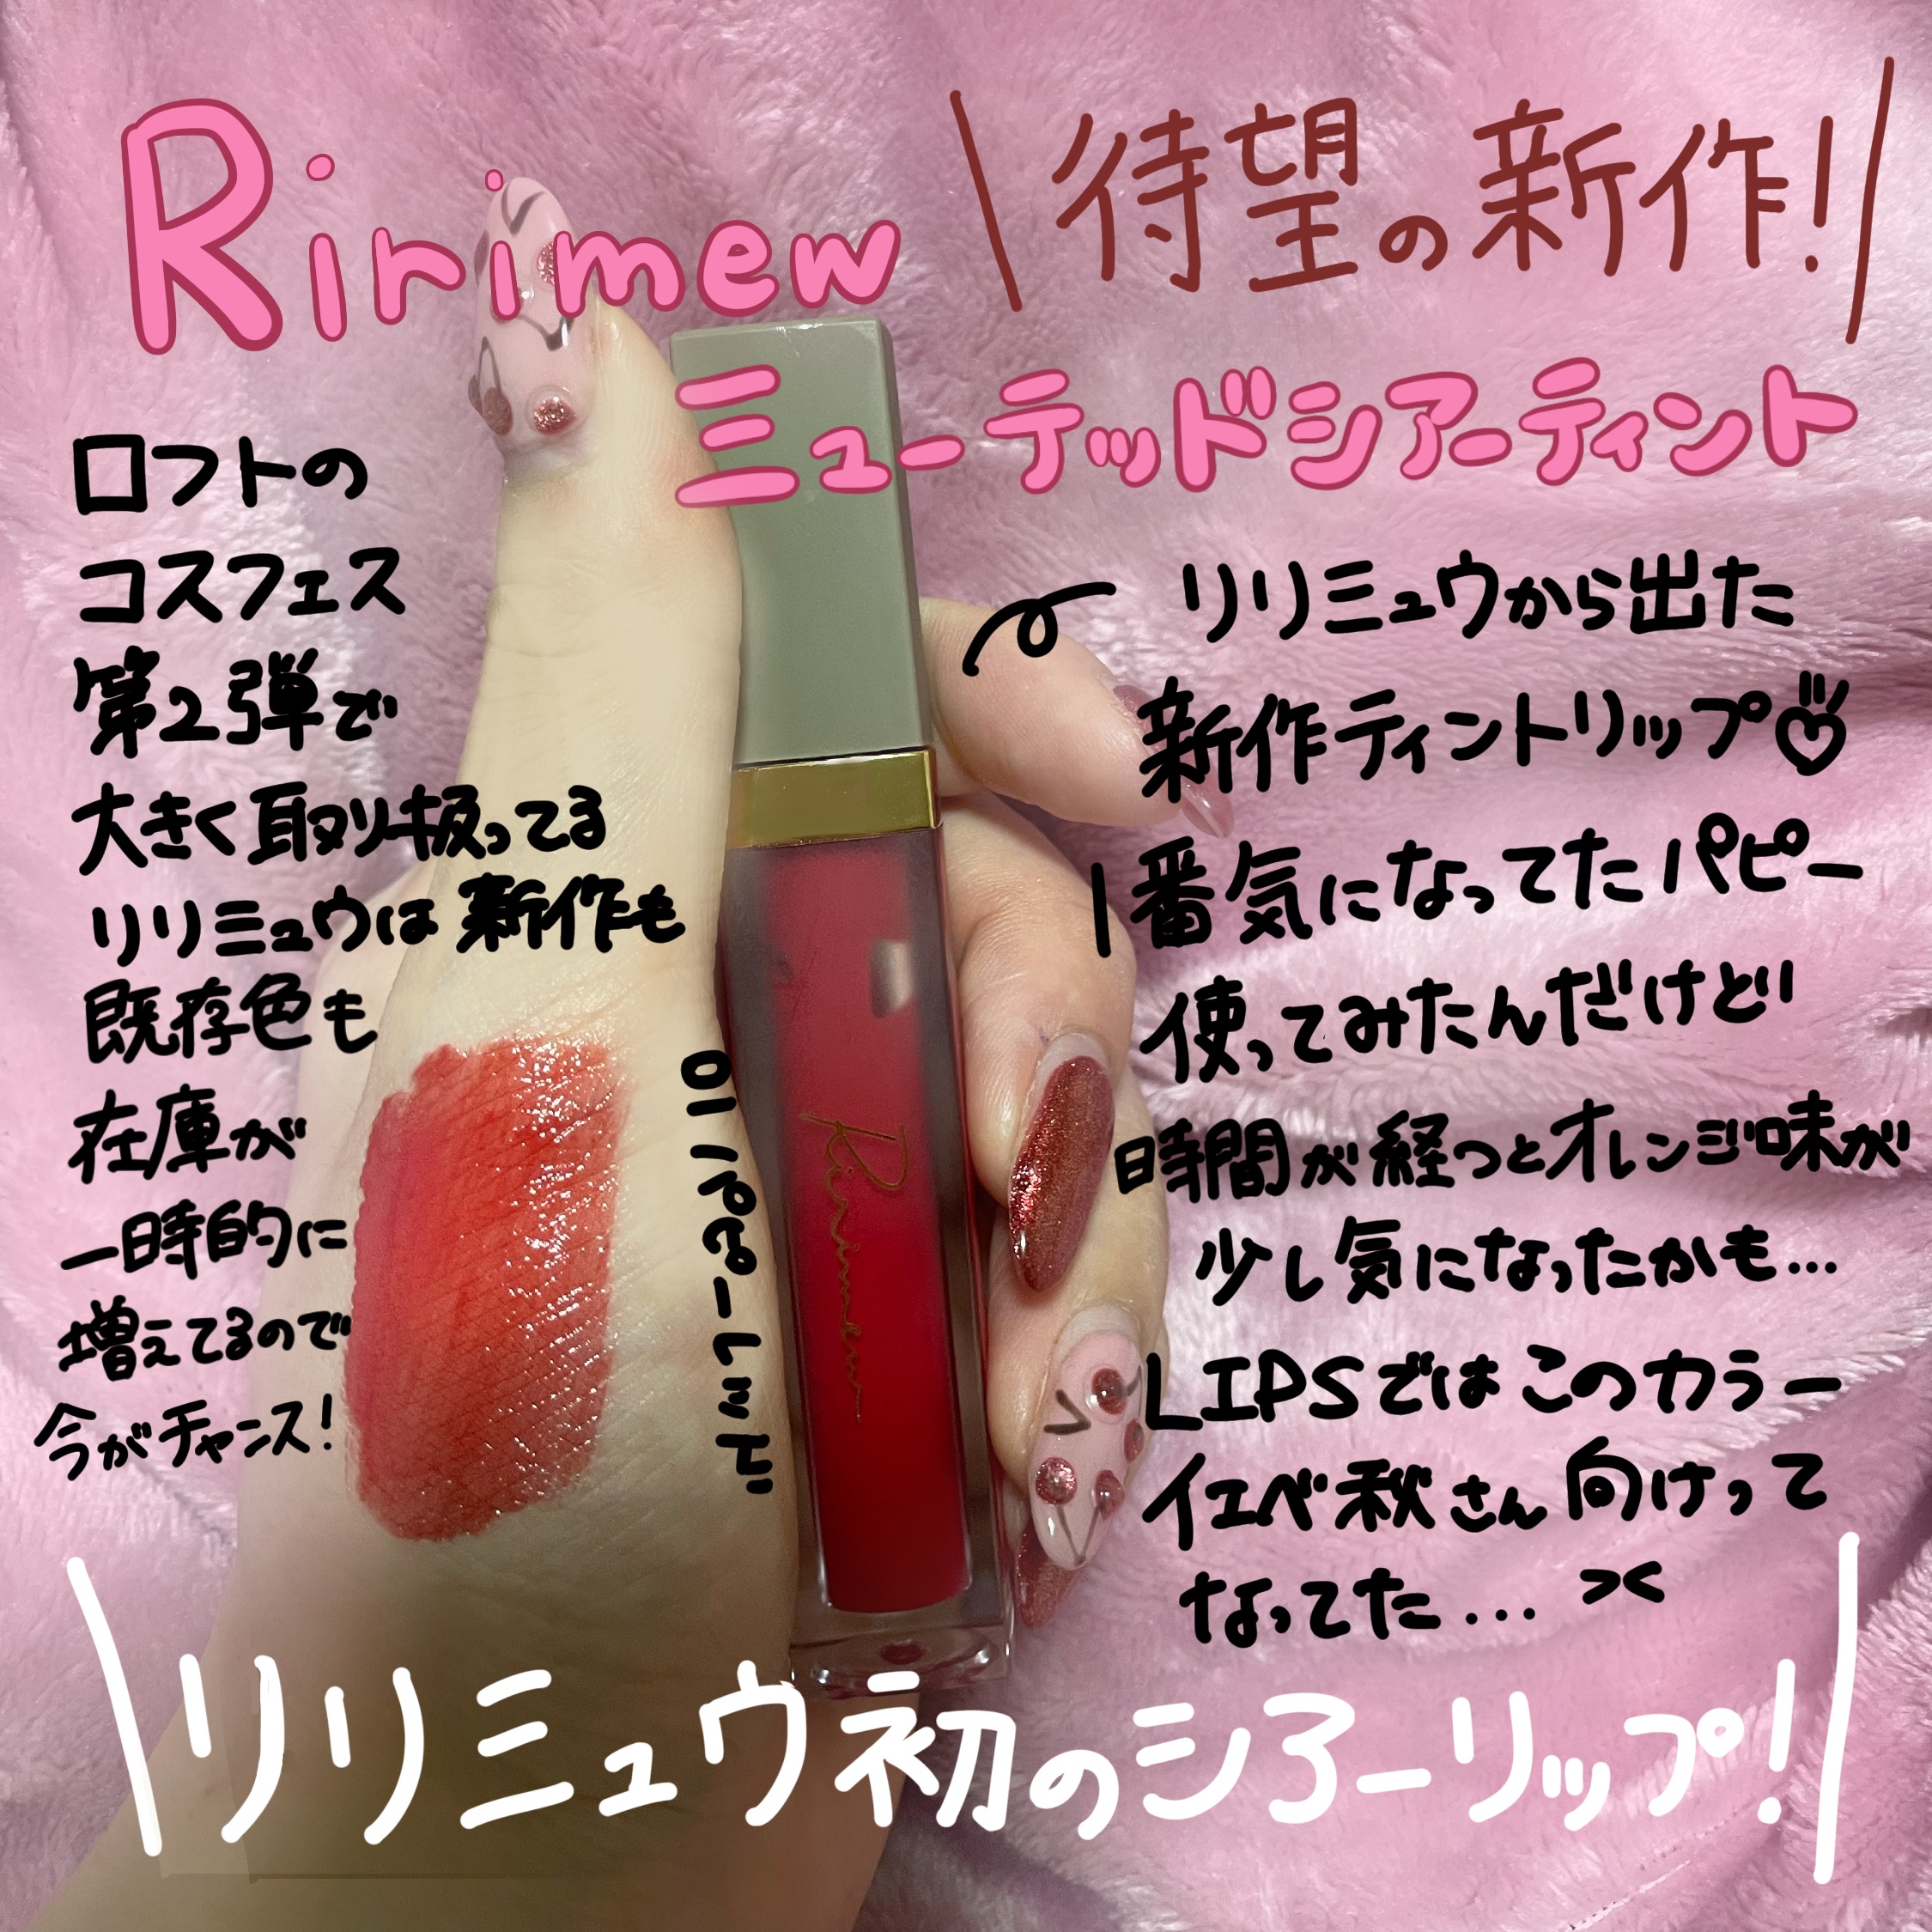 Ririmew
\待望の新作!/
ミューテッドシアーティント
ロフトの
コスフェス
第2弾で
大きく取り扱ってる
リリミュウは新作も
既存色も
在庫が
一時的に
増えてるので
今がチャンス!
01 パピーレッド
Ririmew
リリミュウから出た
新作ティントリップ
1番気になってたパピー
使ってみたんだけど
時間が経つとオレンジ味が
少し気になったかも…
LIPSではこのカラー
イエベ秋さん向けって
なってた… ><
\リリミュウ初のシアーリップ!/